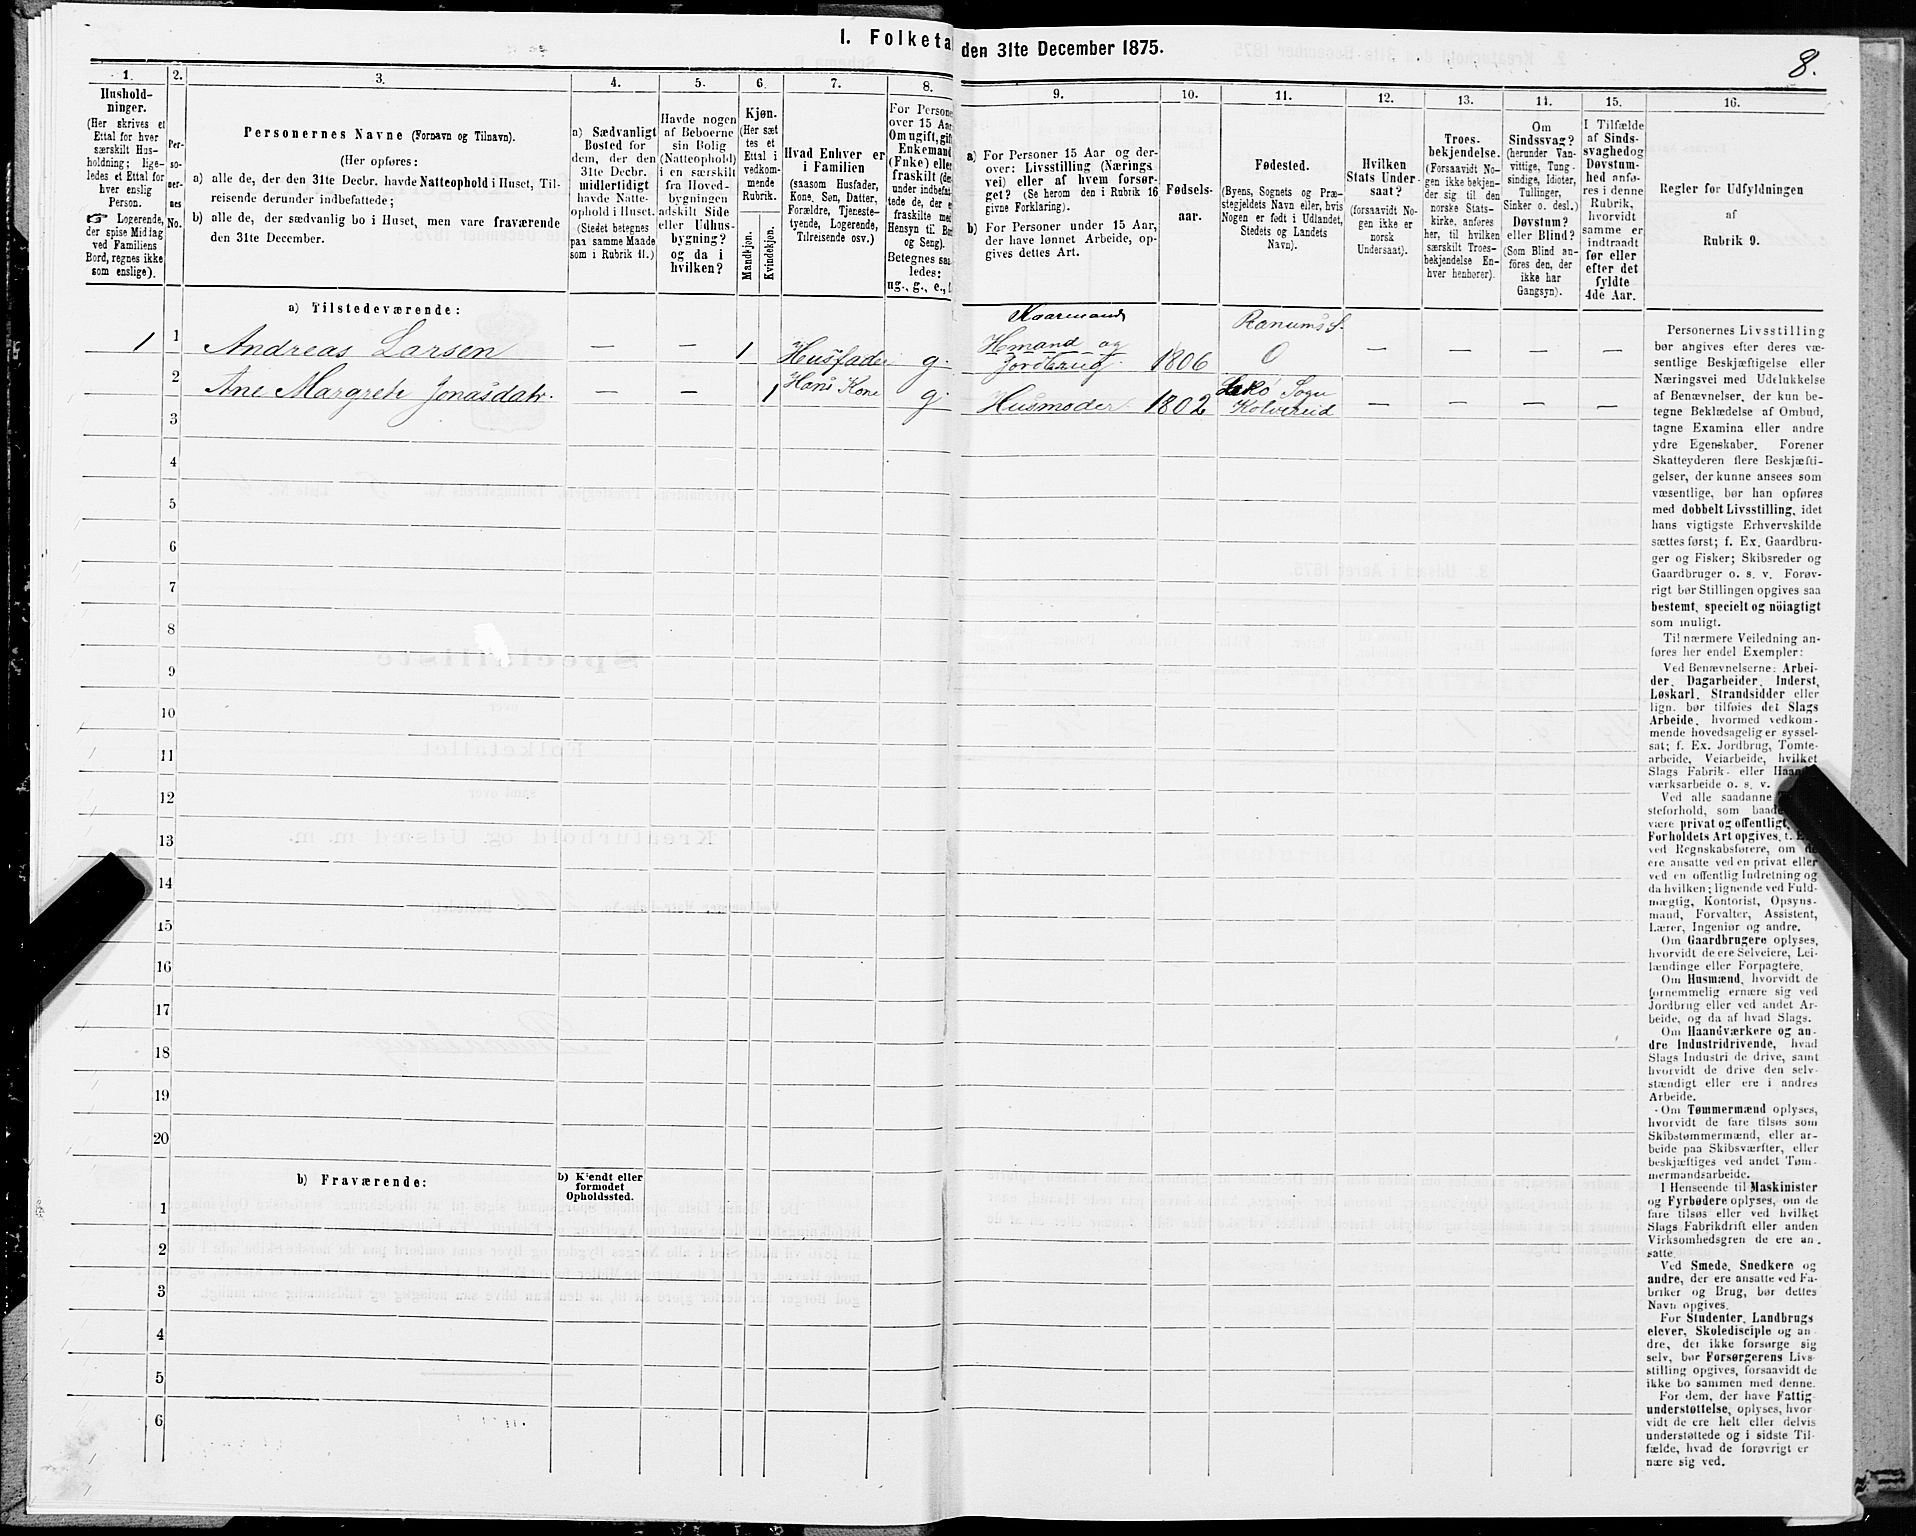 I. Folketa
den 31te December 1875.
8.
1.
Hushold-
ninger.
(Her skrives et
Ettal for hver
særskilt Hus-
holdning; lige-
ledes et Ettal for
hver enslig
Person.
Logerende,
der spise Middag
ved Familiens
Bord, regnes ikke
som enslige).
2.
Per-
so-
ner-
nes
No.
3.
Personernes Navne (Fornavn og Tilnavn).
(Her opføres:
a) alle de, der den 31te Decbr. havde Natteophold i Huset, Til-
reisende derunder indbefattede;
b) alle de, der sædvanlig bo i Huset, men vare fraværende
den 31te December.
4.
a) Sædvanligt
Bosted for
dem, der den
31te Decbr.
midlertidigt
havde Natte-
ophold i Huset.
(Stedet betegnes
paa samme Maade
som i Rubrik 11.)
5.
Havde nogen
af Beboerne
sin Bolig
(Natteophold)
i en særskilt
fra Hoved-
bygningen
adskilt Side
eller Udhus-
bygning?
og da i
hvilken?
6.
Kjøn.
(Her sæt
tes et
Ettal i
vedkom-
mende
Rubrik.
Mandkjøn.
Kvindekjøn.
7.
Hvad Enhver er
i Familien
(saasom Husfader,
Kone, Søn, Datter,
Forældre, Tjeneste-
tyende, Logerende,
Tilreisende osv.)
8.
For Persone
over 15 Aar
Om ugift, gift
Enkemand
(Fnke) eller
fraskilt (der
under indbefat
tede de, der e
fraskilte med
Hensyn til Bo
og Seng).
Betegnes saa
ledes:
ug., g., e., f.
9.
a) For Personer 15 Aar og der-
over: Livsstilling (Nærings
vei) eller af hvem forsør-
get? (Se herom den i Rubrik 16
givne Forklaring).
b) For Personer under 15 Aar,
der have lønnet Arbeide, op-
gives dettes Art.
10.
Fødsels-
aar.
11.
Fødested.
(Byens, Sognets og Præ-
stegjeldets Navn eller, hvis
Nogen er født i Udlandet,
Stedets og Landets
Navn).
12.
Hvilken
Stats Under-
saat?
(forsaavidt No-
gen ikke er
norsk
Undersaat).
13.
Troes-
bekjendelse.
(Forsaavidt No-
gen ikke bekjen-
der sig til den
norske Stats-
kirke, anføres
her, til hvilken
særskilt Troes-
bekjendelse En-
hver henhører).
14.
Om
Sindssvag?
(herunder Van-
vittige, Tung-
sindige, Idioter,
Tullinger,
Sinker o. desl.)
Døvstum?
eller Blind?
(Som Blind an-
føres den, der
ikke har
Gangsyn).
15.
I Tilfælde
af Sinds-
svaghed og
Døvstum-
hed anfø-
res i denne
Rubrik,
hvorvidt
samme er
indtraadt
før eller
efter det
fyldte
4de Aar.
16.
Regler for Udfyldningen
af
Rubrik 9.
a) Tilstedeværende:
1 1 Andreas Larsen — — 1 Husfader g. Kaarmand Hemand og Jordbrug 1806 Ranums S. 0
2 Ane Margreth Jonasdatr. — — 1 Hans Kone g. Husmoder 1802 Lekø Sogn Kolvereid — — — —
3
4
5
6
7
8
9
10
11
12
13
14
15
16
17
18
19
20
b) Fraværende:
b) Kjendt eller
formodet
Opholdssted.
1
2
3
4
5
6
Personernes Livsstilling
bør angives efter deres væ-
sentlige Beskjæftigelse eller
Næringsvei med Udelukkelse
af Benævnelser, der kun be-
tegne Beklædelse af Ombud,
tagne Examina eller andre
ydre Egenskaber. Forener
Skatteyderen flere Beskjæfti-
gelser, der kunne ansees som
væsentlige, bør han opføres
med dobbelt Livsstilling, idet
hans vigtigste Erhvervskilde
sættes først; f. Ex. Gaardbru-
ger og Fisker; Skibsreder og
Gaardbruger o. s. v. Forøv-
rigt bør Stillingen opgives saa
bestemt, specielt og nöiagtigt
som muligt.
Til nærmere Veiledning an-
føres her endel Exempler:
Ved Benævnelserne: Arbei-
der, Dagarbeider, Inderst,
Løskarl, Strandsidder eller
lign. bør tilføies det Slags
Arbeide, hvormed vedkom-
mende hovedsagelig er syssel-
sat; f. Ex. Jordbrug, Tomte-
arbeide, Veiarbeide, hvilket
Slags Fabrik- eller Haand-
værksarbeide o. s. v.
Ved alle saadanne
steforhold, som baade
være privat og offentligt,
Forholdets Art opgives, f. Ex.
ved Regnskabsførere, om de
ere ansatte ved en privat eller
ved en offentlig Indretning og
da hvilken; lignende ved Fuld-
mægtig, Kontorist, Opsyns-
mand, Forvalter, Assistent,
Lærer, Ingeniør og andre.
Om Gaardbrugere oplyses,
hvorvidt de ere Selveiere, Lei-
lændinge eller Forpagtere.
Om Husmænd, hvorvidt de
fornemmelig ernære sig ved
Jordbrug eller ved andet Ar-
beide, og da af hvad Slags.
Om Haandværkere og an-
dre Industridrivende, hvad
Slags Industri de drive, samt
hvorvidt de drive den selv-
stændigt eller ere i andres
Arbeide.
Om Tømmermænd oplyses,
hvorvidt de fare tilsøs som
Skibstømmermænd, eller ar-
beide paa Skibsværfter, eller
beskjæftiges ved andet Tøm-
mermandsarbeide.
I Henseende til Maskinister
og Fyrbødere oplyses, om de
fare tilsøs eller ved hvilket
Slags Fabrikdrift eller anden
Virksomhedsgren de ere an-
satte.
Ved Smede, Snedkere og
andre, der ere ansatte ved Fa-
briker og Brug, bør dettes
Navn opgives.
For Studenter, Landbrugs
elever, Skoledisciple og an-
dre, der ikke forsørge sig
selv, bør Forsørgerens Livs-
stilling opgives, forsaavidt de
ikke bo sammen med denne.
For dem, der have Fattig
understøttelse, oplyses, hvor
vidt de ere helt eller delvis
understøttede og i sidste Til-
fælde, hvad de forøvrigt er
nære sig ved.